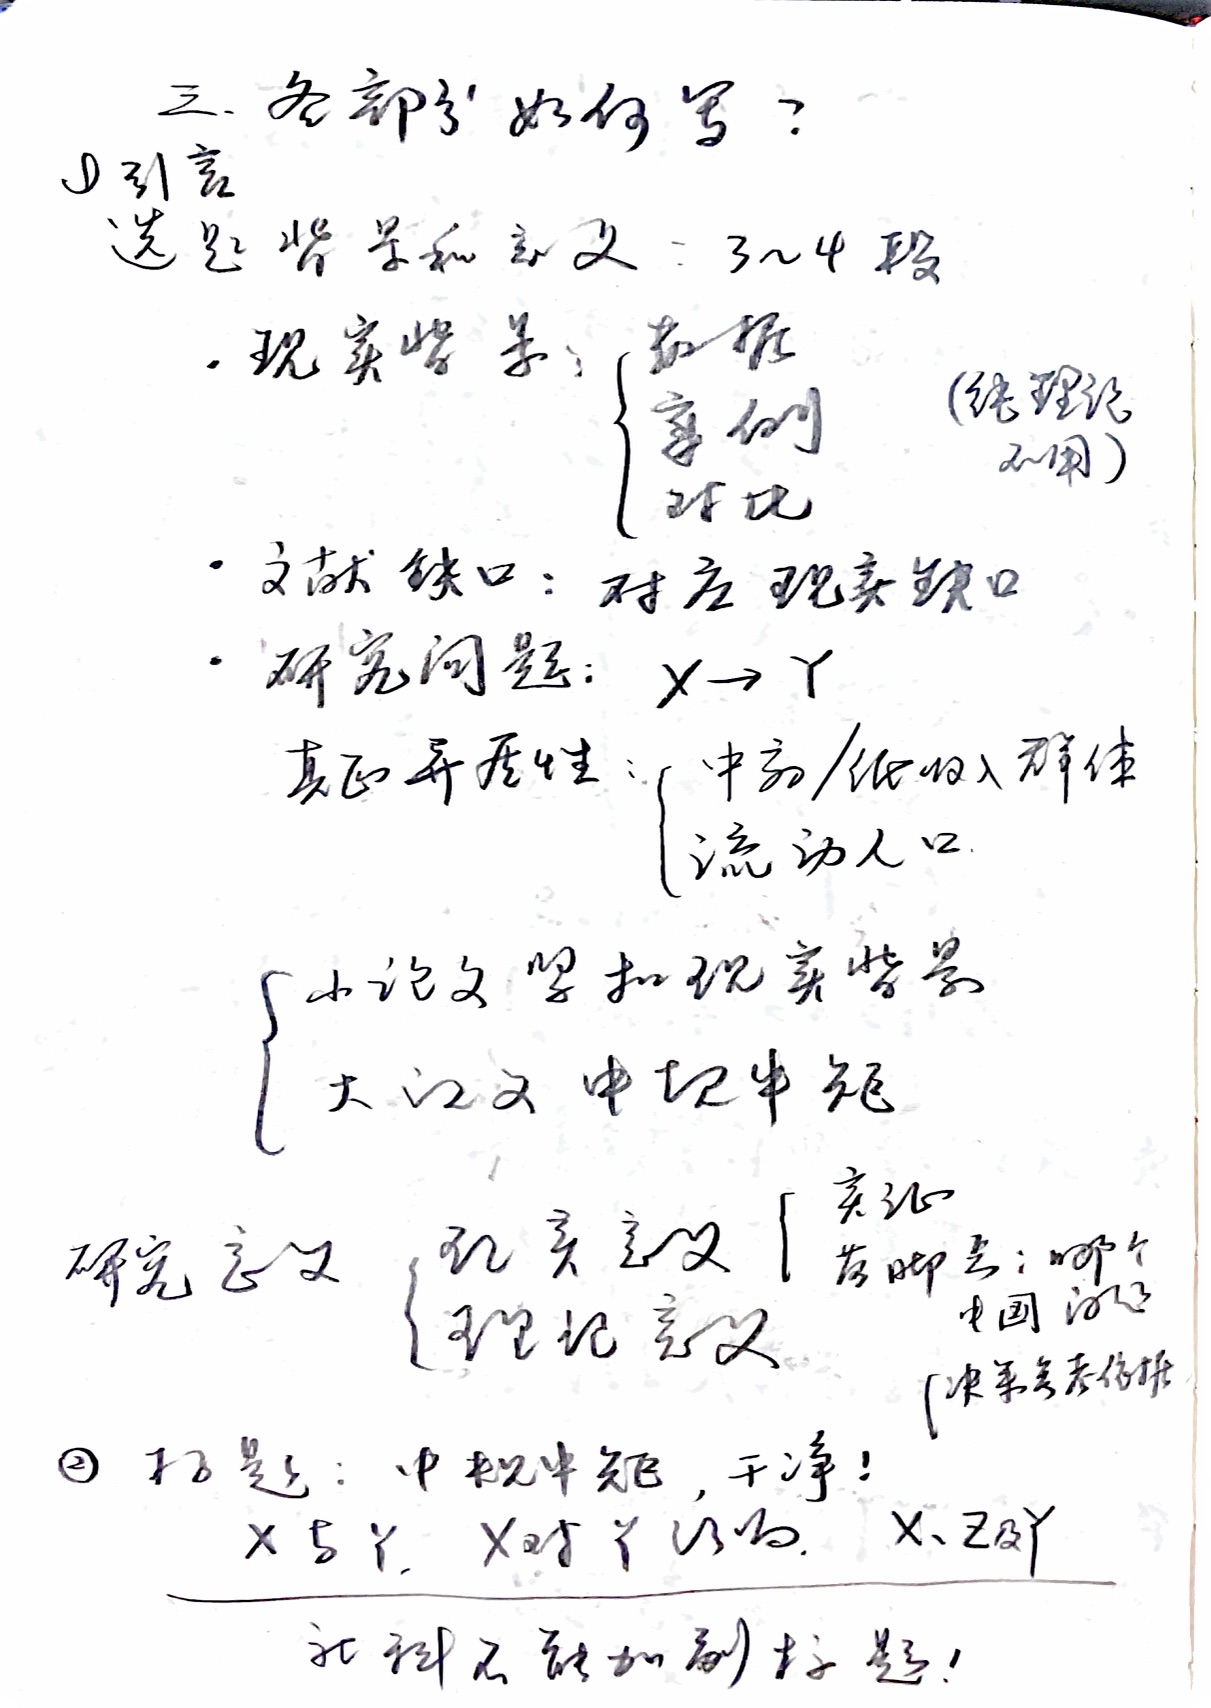 三、各部分如何写?
① 引言
选题背景和意义:3~4段
· 现实背景:{ 数据
案例
对比
(纯理论
不用)
· 文献缺口:对应现实缺口
· 研究问题:X→Y
真正异质性:{ 中高/低收入群体
流动人口
{ 小论文紧扣现实背景
大论文中规中矩
研究意义 { 现实意义
理论意义
[ 实证
落脚点:哪个
中国问题
决策参考依据
② 标题:中规中矩,干净!
X与Y. X对Y影响. X、Z及Y
社科不能加副标题!